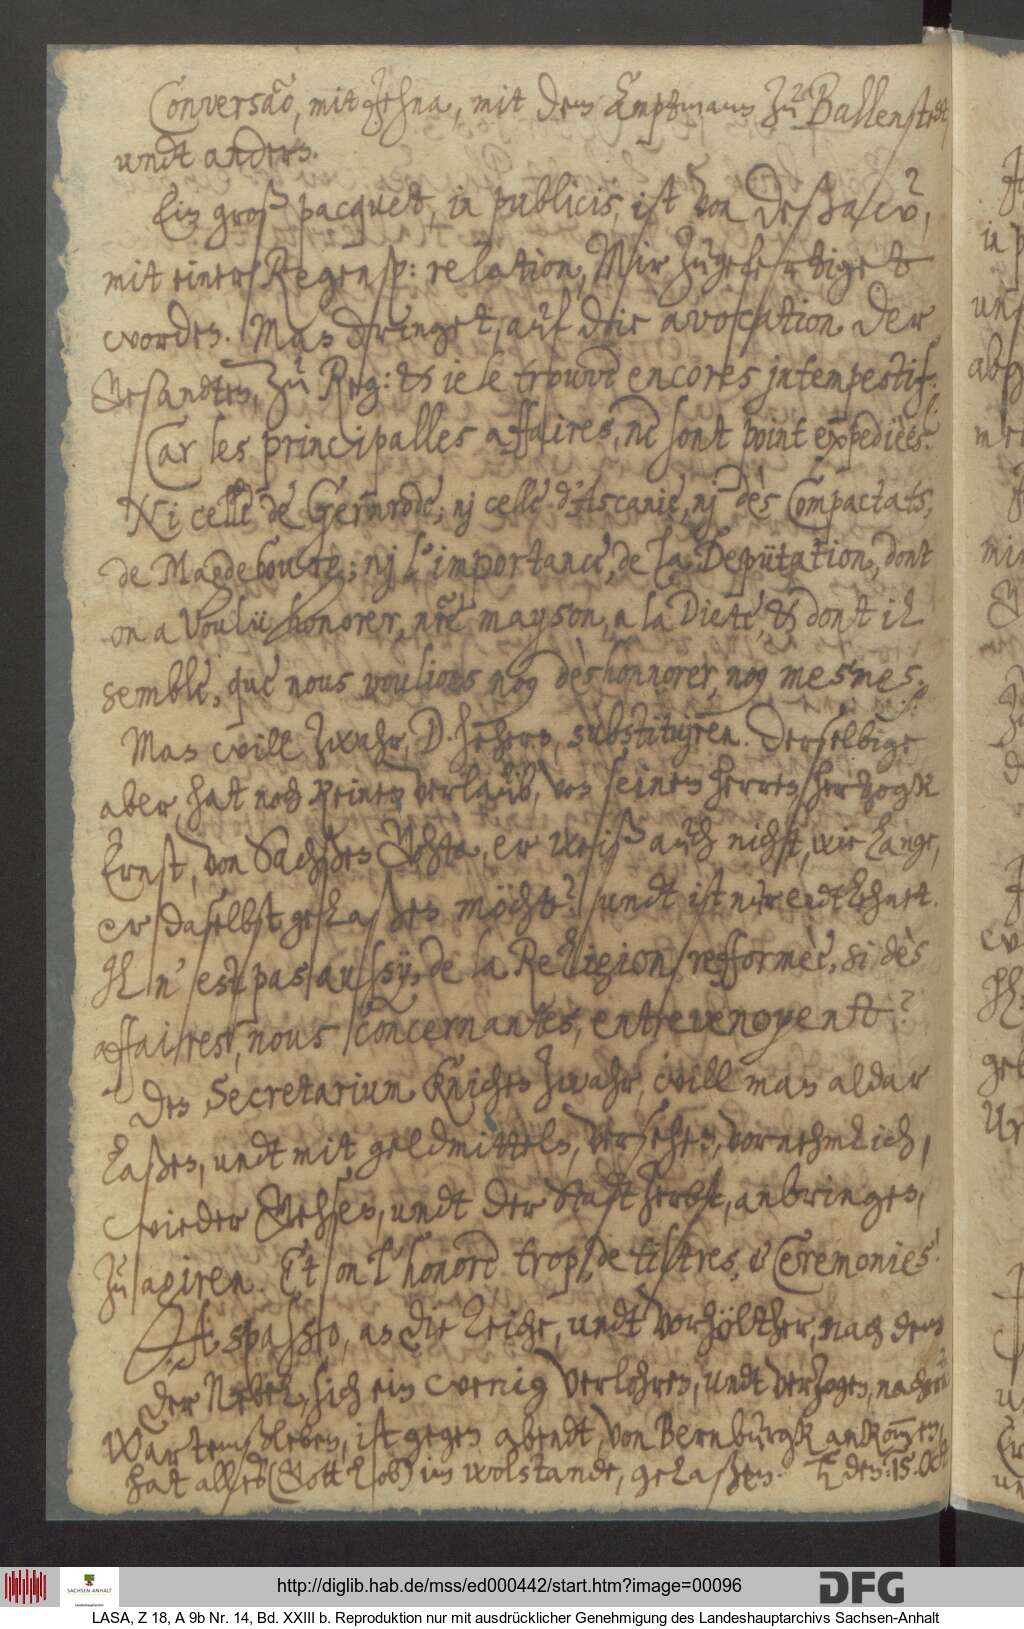 Conversãõ, mit Jehna, mit dem Amptmann zu Ballenstedt
undt anders.
Ein groß pacquet, in publicis, ist von Deßaw,
mit einer Regensp: relation, Mir zugefertiget
worden. Man dringet, auf die avocation der
Gesandten, zu Reg: et ie le trouve encores jntempestif.
Car les principalles affaires, ne sont point expedièes.
Ni celle de Gernrode; nj celle d'Ascanie, nj dès Compactats,
de Magdebourg; nj l'importance, de la Depütation, dont
on a voulü honorer, nr̃e mayson, a la Diete, et dont il
semble, que nous voulions noy deshonnorer, noy mesmes.
Man will zwahr, D. Hehern, substituiren. Derselbige
aber, hat noch keinen verlaub, von seinem herren, hertzogk
Ernst, von Sachßen Gotha, er weiß auch nicht, wie lange,
er daselbst gelaßen möchte? undt ist nur endtlehnet.
Il n'est pas aussy, de la Religion refformèe, si dès
affaires, nous concernantes, entrevenoyent?
Den Secretarium Knichen zwahr, will man aldar
laßen, undt mit geldmitteln, versehen, vornehmlich,
wieder Gehsen, undt der Stadt Zerbst, anbringen,
zu agiren. Et on l'honore trop, de tiltres, & Ceremonies!
A spasso, an die Teiche, undt vorhöltzer, nach dem
der Nebel, sich ein wenig verlohren, undt verzogen, nachm̃.
Wartemßleben, ist gegen abendt, von Bernburgk ankommen,
hat alles (Gott lob) im wolstande, gelaßen. den: 15. Octob.
http://diglib.hab.de/mss/ed000442/start.htm?image=00096
SACHSEN-ANHALT
DFG
LASA, Z 18, A 9b Nr. 14, Bd. XXIII b. Reproduktion nur mit ausdrücklicher Genehmigung des Landeshauptarchivs Sachsen-Anhalt